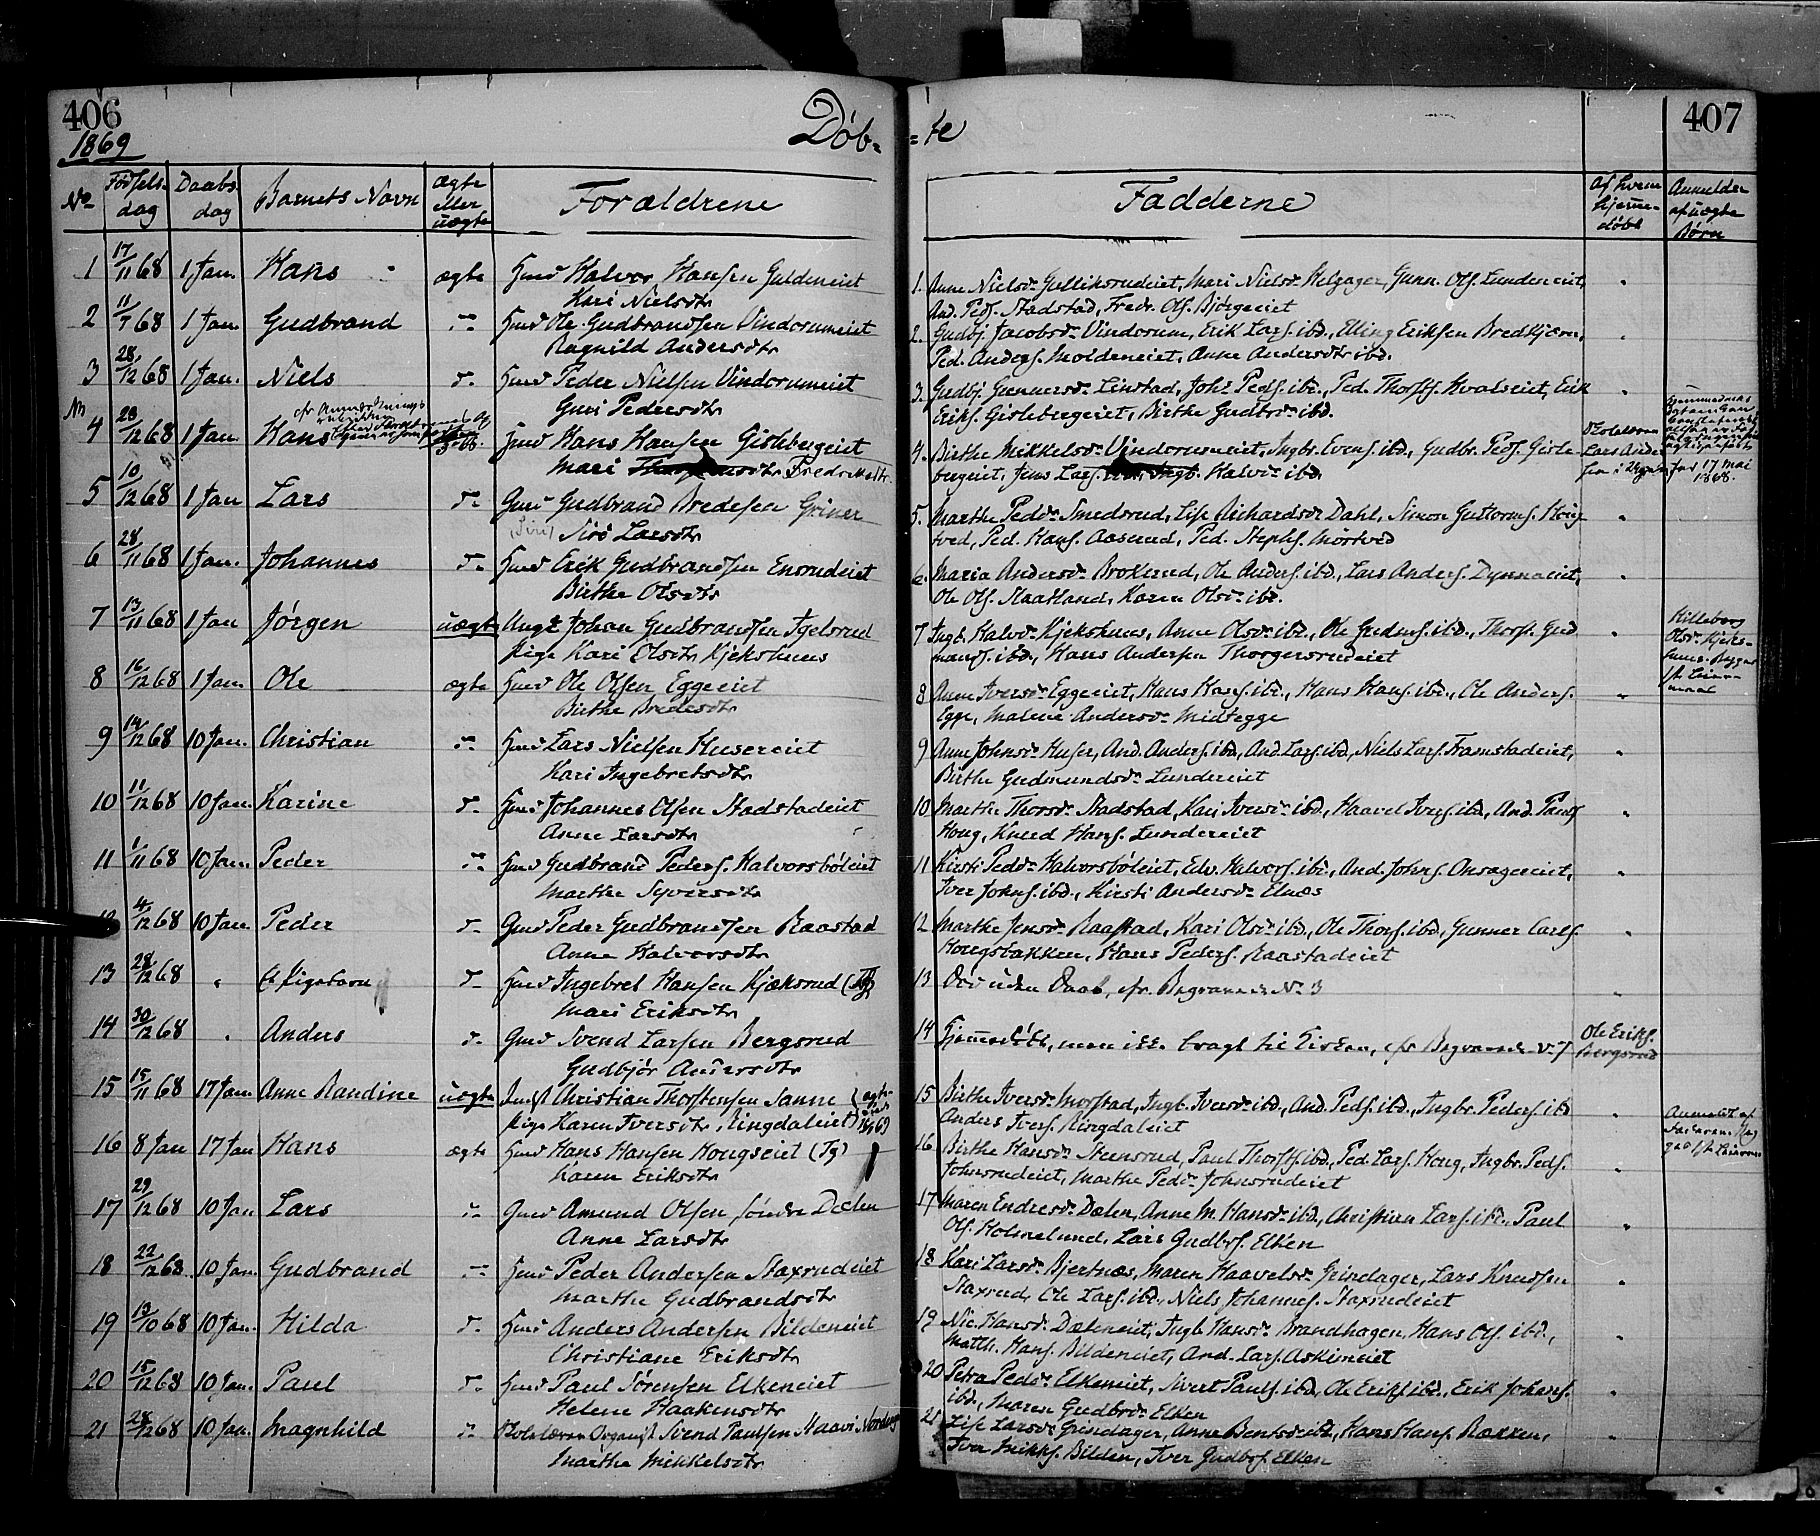 406
1869
Døb-
No
Fødsels-
dag
Daabs
dag
Barnets Navn
ægte
eller
uægte
Forældrene
1 17/11 68 1 Jan. Hans ægte Huusm Halvor Hansen Guldeneiet
Kari Nielsdtr
2 11/9 68 1 Jan. Gudbrand Ole Gudbrandsen Vindorumeiet
Ragnild Andersdtr
3 28/12 68 1 Jan. Niels Peder Nielsen Vindorumeiet
Guri Pedersdtr
4 28/12 68 1 Jan Hans Hans Hansen Gislebergeiet
Mari Fredriksdtr
5 10/12 68 1 Jan Lars Gudbrand Bredesen Griner
Siri Larsdtr
6 28/11 68 1 Jan. Johannes Erik Gudbrandsen Ensrudeiet
Birthe Olsdtr
7 13/11 68 1 Jan Jørgen uægte Ungk. Johan Gudbrandsen Igelsrud
Pige Kari Olsdtr Kjekshuus
8 16/12 68 1 Jan. Ole ægte Ole Olsen Eggeeiet
Birthe Bredesdtr
9 14/12 68 10 Jan. Christian Lars Nielsen Husereiet
Kari Ingebretsdtr
10 11/12 68 10 Jan. Karine Johannes Olsen Stadstadeiet
Anne Larsdtr
11 1/11 68 10 Jan. Peder Gudbrand Peders. Halvorsbøleiet
Marthe Syversdtr
12 4/12 68 10 Jan. Peder Peder Gudbrandsen Raastad
Anne Halvorsdtr
13 28/12 68 Et Pigebarn Ingebret Hansen Kjæksrud
Mari Eriksdtr
14 30/12 68 Anders Svend Larsen Bergsrud
Gudbjør Andersdtr
15 15/11 68 17 Jan. Anne Randine uægte Christian Thorstensen Sanne
Pige Karen Iversdtr Ringdaleiet
16 8 Jan 17 Jan Hans ægte Hans Hansen Hougseiet (Tg)
Karen Eriksdtr
17 29/12 68 10 Jan Lars Amund Olsen Søndre Dælen
Anne Larsdtr
18 22/12 68 10 Jan. Gudbrand Peder Andersen Staxrudeiet
Marthe Gudbrandsdtr
19 13/10 68 10 Jan. Hilda Anders Andersen Bildeneiet
Christiane Eriksdtr
20 15/12 68 10 Jan. Paul Paul Sørensen Elkeneiet
Helene Haakensdtr
21 28/12 68 10 Jan. Magnhild Organist Svend Paulsen
Marthe Mikkelsdtr
407
=te
Fadderne
Af hvem
hjemme-
døbt
Anmelder
af uægte
Børn
1. Anne Nielsd. Gulliksrudeiet, Mari Nielsd. Helgager, Gunn. Ols. Lundereiet,
And. Peds. Stadstad, Fredr. Ols. Bjørgeeiet
2. Gudbj. Jacobsd. Vindorum, Erik Lars. ibd., Elling Eriksen Bredkjern,
Ped. Anders. Moldeneiet, Anne Andersdtr ibd.
3. Gudbj. Gunnersd. Linstad, Joh. Peds. ibd., Ped. Thorsts. Hvalseiet, Erik
Eriks. Gislebergeiet, Birthe Gudbrd. ibd.
4. Birthe Mikkelsd. Vindorumeiet, Ingbr. Evens. ibd., Gudbr. Peds. Gisle-
bergeiet, Jens Lars. Halvs. ibd.
Lars Ander-
sen
før 17 Mai
1868.
5. Marthe Pedsd. Smedsrud, Lise Richardsd. Dahl, Simon Guttorms. Kong-
tved, Ped. Hans. Aaserud, Ped. Stephs. Mørtved
6. Maria Andersd. Brokerud, Ole Anders. ibd., Lars Anders. Dynnaeiet,
Ole Ols. Raakland, Karen Olsd. ibd.
7 Ingb. Halvd. Kjekshuus, Anne Olsd. ibd., Ole Gudms. ibd., Thorst. Gud-
mands. ibd., Hans Andersen Thorgersrudeiet
Olsd. Kjeks-
8 Anne Iversd. Eggeeiet, Hans Hans. ibd., Hans Hans. ibd., Ole Anders.
Egge, Malene Andersd. Midtegge
9 Anne Johnsd. Huser, And. Anders. ibd., And. Lars. ibd., Niels Lars. Framstadeiet,
Birthe Gudmundsd. Lundereiet
10 Marthe Thorsd. Stadstad, Kari Iversd. ibd., Haavel Ivers. ibd., And. Pauls.
Houg, Knud Hans. Lundereiet
11 Kirsti Pedsd. Halvorsbøleiet, Edv. Halvors. ibd., And. Johns. Onsagereiet,
Iver Johns. ibd., Kirsti Andersd. Elnæs
12 Marthe Jensd. Raastad, Kari Olsd. ibd., Ole Thors. ibd., Gunner Larss.
Hougsbakken, Hans Peders. Raastadeiet
13 Død uden Daab, cfr. Begravede No 3
14 Hjemmedøbt, men ikke bragt til Kirken, cfr Begravede No 7
Ole Eriks.
Bergsrud
15 Birthe Iversd. Morstad, Ingb. Iversd. ibd., And. Peds. ibd., Ingbr. Peders. ibd
Anders Ivers. Ringdaleiet
Anmeldt af
16 Birthe Hansd. Steensrud, Paul Thorsts. ibd., Ped. Lars. Houg, Ingbr. Peds.
Johnsrudeiet, Marthe Pedsd. Johnsrudeiet
17 Maren Endresd. Dælen, Anne M. Hansd. ibd., Christian Lars. ibd., Paul
Ols. Holmelund, Lars Gudbrs. Elken
18 Kari Larsd. Bjertnæs, Maren Haavelsd. Grindager, Lars Knudsen
Staxrud, Ole Lars. ibd., Niels Johannes. Staxrudeiet
19 Nic. Hansd. Dæleneiet, Ingb. Hansd. Brandhagen, Hans Ols. ibd.,
Math. Hans. Bildeneiet, And. Lars. Askimeiet
20 Petra Pedsd. Elkeneiet, Sivert Pauls. ibd., Ole Eriks. ibd., Erik Johans.
ibd., Maren Gudbrsd. Elken
21 Lise Larsd. Grindager, Anne Berntsd. ibd., Hans Hans. Bakken,
Iver Mikks. Bilden, Iver Gudbrs. Elken